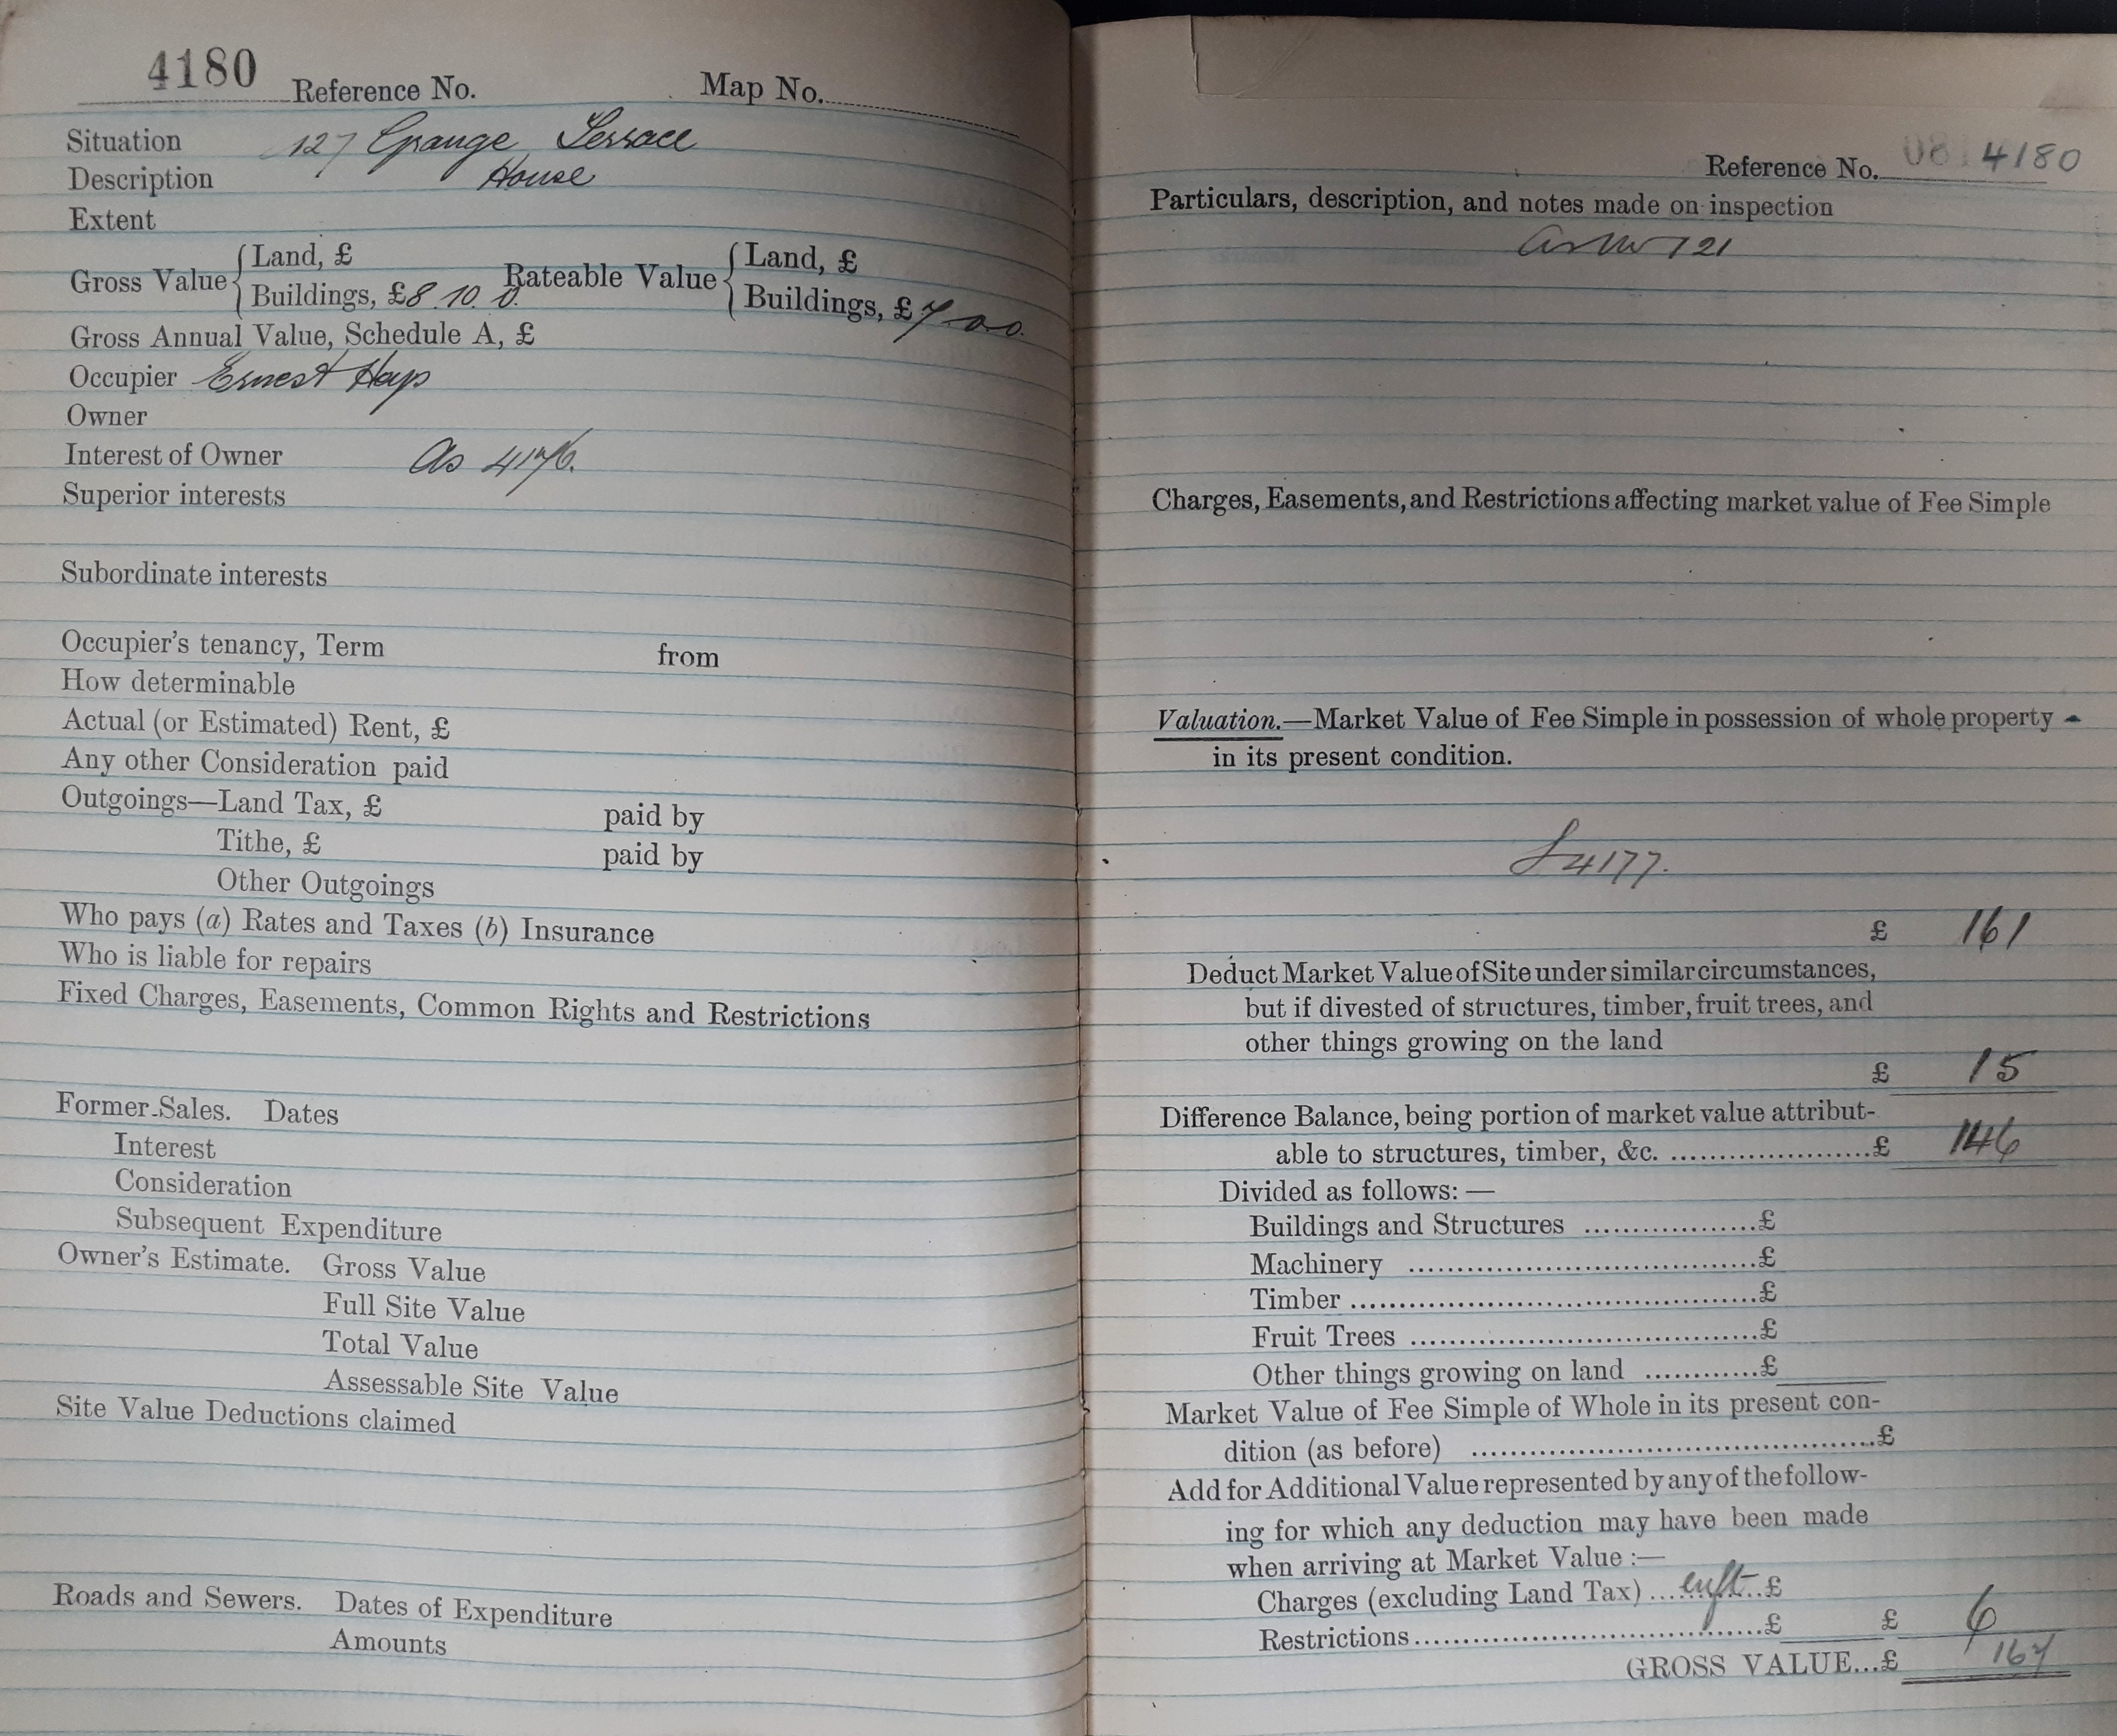 4180 Reference No. Map No.
Situation 127 Grange Terrace
Description House
Extent
Gross Value { Land, £
Buildings, £8. 10. 0. Rateable Value { Land, £
Buildings, £7 - 0 - 0.
Gross Annual Value, Schedule A, £
Occupier Ernest Hays
Owner
Interest of Owner As 4176.
Superior interests
Subordinate interests
Occupier's tenancy, Term from
How determinable
Actual (or Estimated) Rent, £
Any other Consideration paid
Outgoings—Land Tax, £ paid by
Tithe, £ paid by
Other Outgoings
Who pays (a) Rates and Taxes (b) Insurance
Who is liable for repairs
Fixed Charges, Easements, Common Rights and Restrictions
Former Sales. Dates
Interest
Consideration
Subsequent Expenditure
Owner's Estimate. Gross Value
Full Site Value
Total Value
Assessable Site Value
Site Value Deductions claimed
Roads and Sewers. Dates of Expenditure
Amounts
Reference No. 4180
Particulars, description, and notes made on inspection
121
Charges, Easements, and Restrictions affecting market value of Fee Simple
Valuation.—Market Value of Fee Simple in possession of whole property
in its present condition.
4177.
£ 161
Deduct Market Value of Site under similar circumstances,
but if divested of structures, timber, fruit trees, and
other things growing on the land
£ 15
Difference Balance, being portion of market value attribut-
able to structures, timber, &c. ......................£ 146
Divided as follows: —
Buildings and Structures ..................£
Machinery ....................................£
Timber ...........................................£
Fruit Trees .....................................£
Other things growing on land ............£
Market Value of Fee Simple of Whole in its present con-
dition (as before) ..........................................£
Add for Additional Value represented by any of the follow-
ing for which any deduction may have been made
when arriving at Market Value :—
Charges (excluding Land Tax) ............£
Restrictions....................................£ £ 6
GROSS VALUE...£ 167